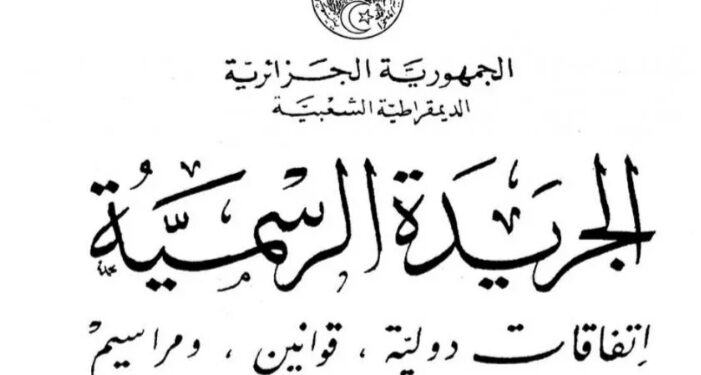 الجمهورية الجزائرية
الديمقراطية الشعبية
الجريدة الرسمية
اتفاقات دولية ، قوانين ، ومراسيم